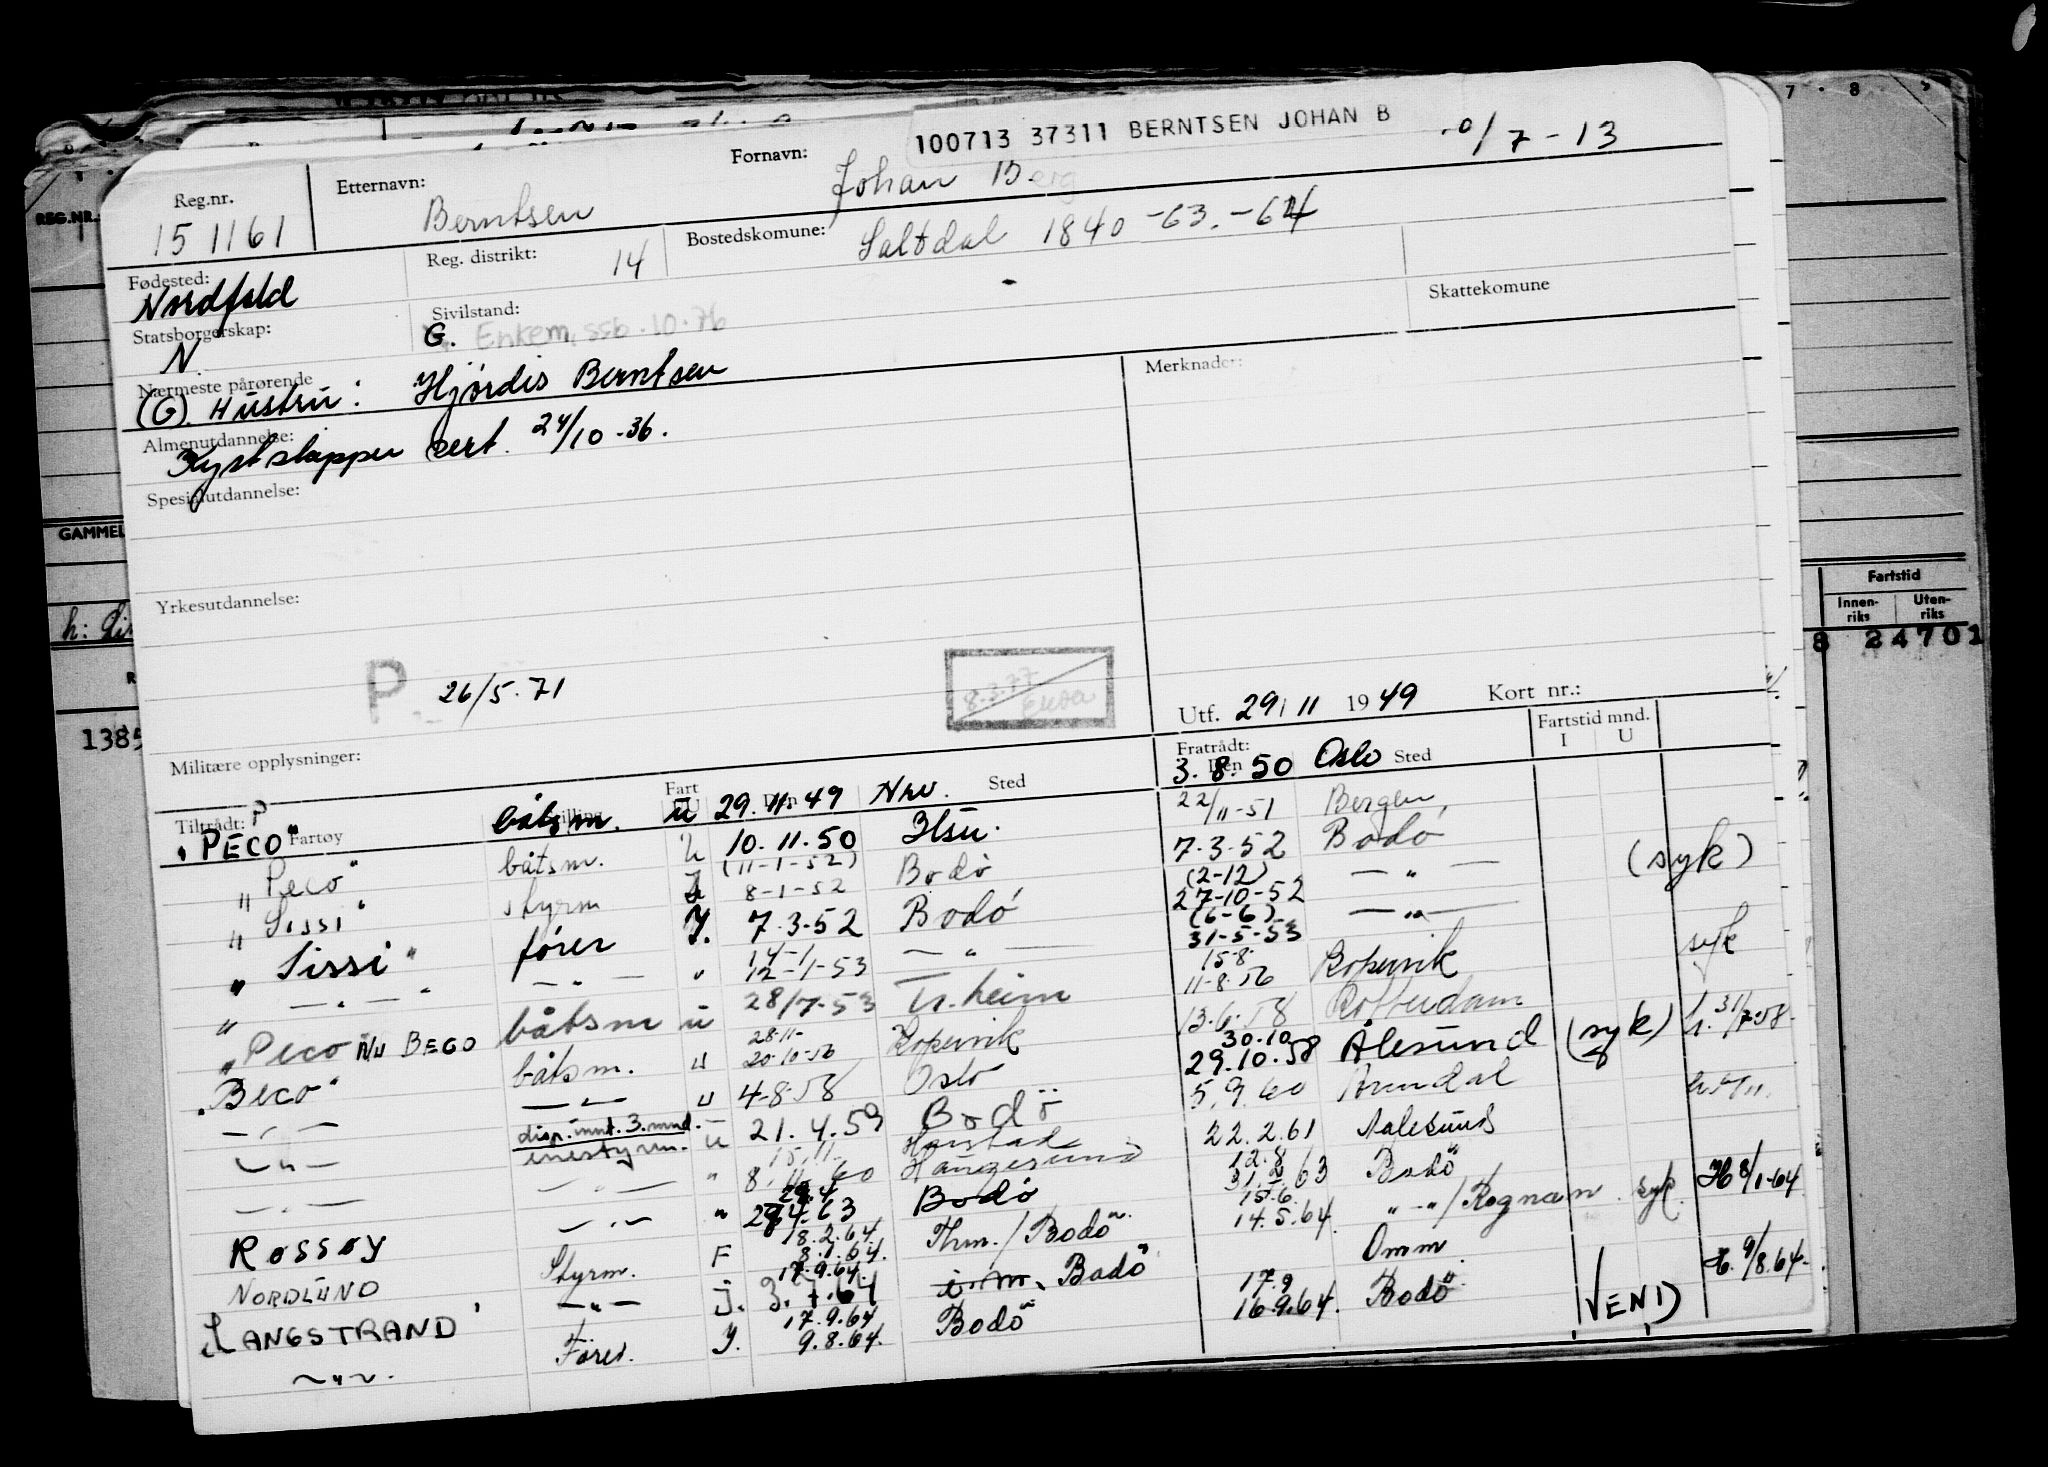 100713 37311 BERNTSEN JOHAN B
Reg.nr. Etternavn: Fornavn: 0/7-13
151161 Berntsen Johan Berg
Fødested: Reg. distrikt: 14 Bostedskomune: Saltdal 1840 -63. -64
Nordfold
Statsborgerskap: Sivilstand: Skattekomune
N. G. Enkem, ssb. 10.76
Nærmeste pårørende Merknader:
(G). Hustru: Hjørdis Berntsen
Almenutdannelse:
Kystskipper cert. 24/10-36.
Spesialutdannelse:
Yrkesutdannelse:
P 26/5.71 8.3.77
Utf. 29/11 1949 Kort nr.:
Militære opplysninger: Fratrådt: Fartstid mnd.
Tiltrådt: Fartøy Stilling Fart Den Sted Den Sted I U
"PECO" båtsm. u 29.11.49 Nrv. 3.8.50 Oslo
"Peco" båtsm. u 10.11.50 22/11-51 Bergen,
"Sissi" styrm (11-1-52) 8-1-52 Bodö 7.3.52 Bodö
"Sissi" fører I. 7.3.52 Bodó (2-12) 27-10-52 — " — (syk)
" — " — — " — " 14-1 12-1-53 — " — (6-6) 31-5-53 — " —
"Peco nu BECO båtsm u 28/7-53 Tr.heim 15-8- 11-8-56 Kopervik syk
"Beco" båtsm. u 28-11- 20-10-56 Kopervik 13.6.58 Rotterdam
— " — — " — u 4-8-58 Oslo 30.10 29.10.58 Ålesund (syk) h. 31/7-58-
— " — disp. innt. 3. mnd. enestyrm. u 21.4.59 Bodö 5.9.60 Arendal
— " — — " — " 15.11. 8.11.60 Harstad Haugesund 22.2.61 Aalesund
ROSSØY — " — " 63 Bodö 12.8 63 Bodö
NORDLUND Styrm. F 18.2.64. 8.1.64. Thm./Bodö 15.6. 14.5.64. " — "/Rognan syk. H 8/1-64
LANGSTRAND — " — j. 17.9.64. 64 i.m. Bodö Omm.
— " — Förer. I. 17.9.64 9.8.64. Bodö 17.9 16.9.64. Bodö H. 9/8.64-
VEND
REG.NR.
GAMMEL
h:
1385
7 8
Fartstid
Innenriks Utenriks
8 24701